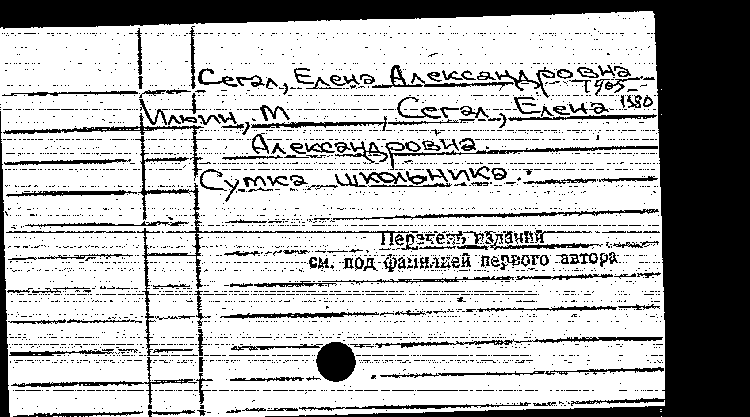 Сегал, Елена Александровна
1905-
1980
Ильин, М , Сегал, Елена
Александровна.
Сутка школьника.
Перечень изданий
см. под фамилией первого автора